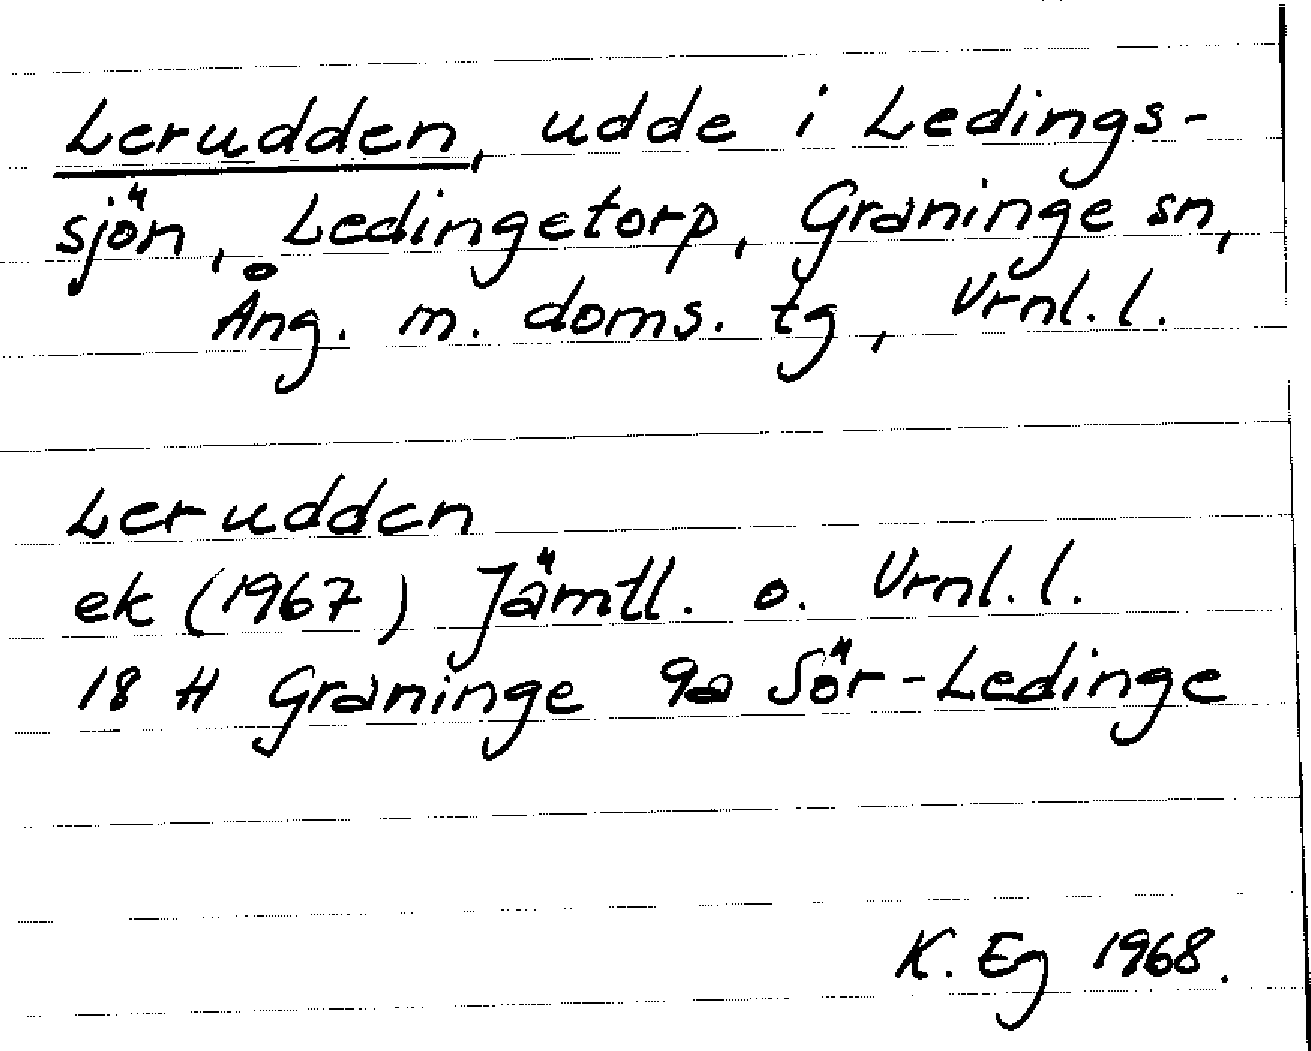 Lerudden, udde i Ledings-
sjön, Ledingetorp, Graninge sn,
Ång. m. doms. tg, Vrnl. l.
Lerudden
ek (1967) Jämtl. o. Vrnl. l.
18 H Graninge 9a Sör-Ledinge
K. Eg 1968.